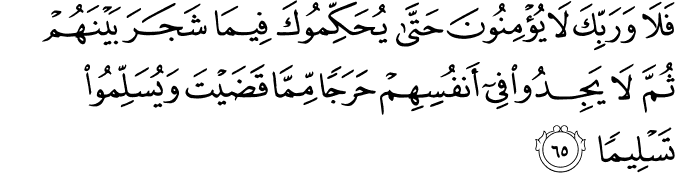 فَلَا وَرَبِّكَ لَا يُؤْمِنُونَ حَتَّىٰ يُحَكِّمُوكَ فِيمَا شَجَرَ بَيْنَهُمْ
ثُمَّ لَا يَجِدُوا۟ فِىٓ أَنفُسِهِمْ حَرَجًا مِّمَّا قَضَيْتَ وَيُسَلِّمُوا۟
تَسْلِيمًا ٦٥